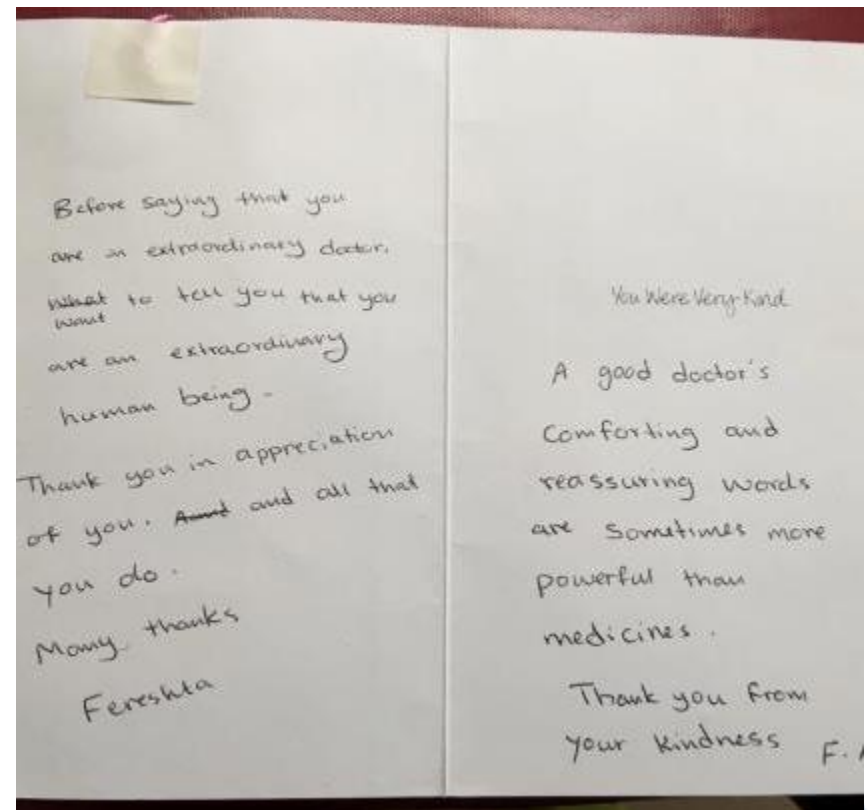 Before saying that you
are an extraordinary doctor.
What to tell you that you
want
are an extraordinary
human being.
Thank you in appreciation
of you. And and all that
you do.
Many thanks
Fereshta
You Were Very Kind
A good doctor's
Comforting and
reassuring words
are sometimes more
powerful than
medicines.
Thank you from
your kindness
F.